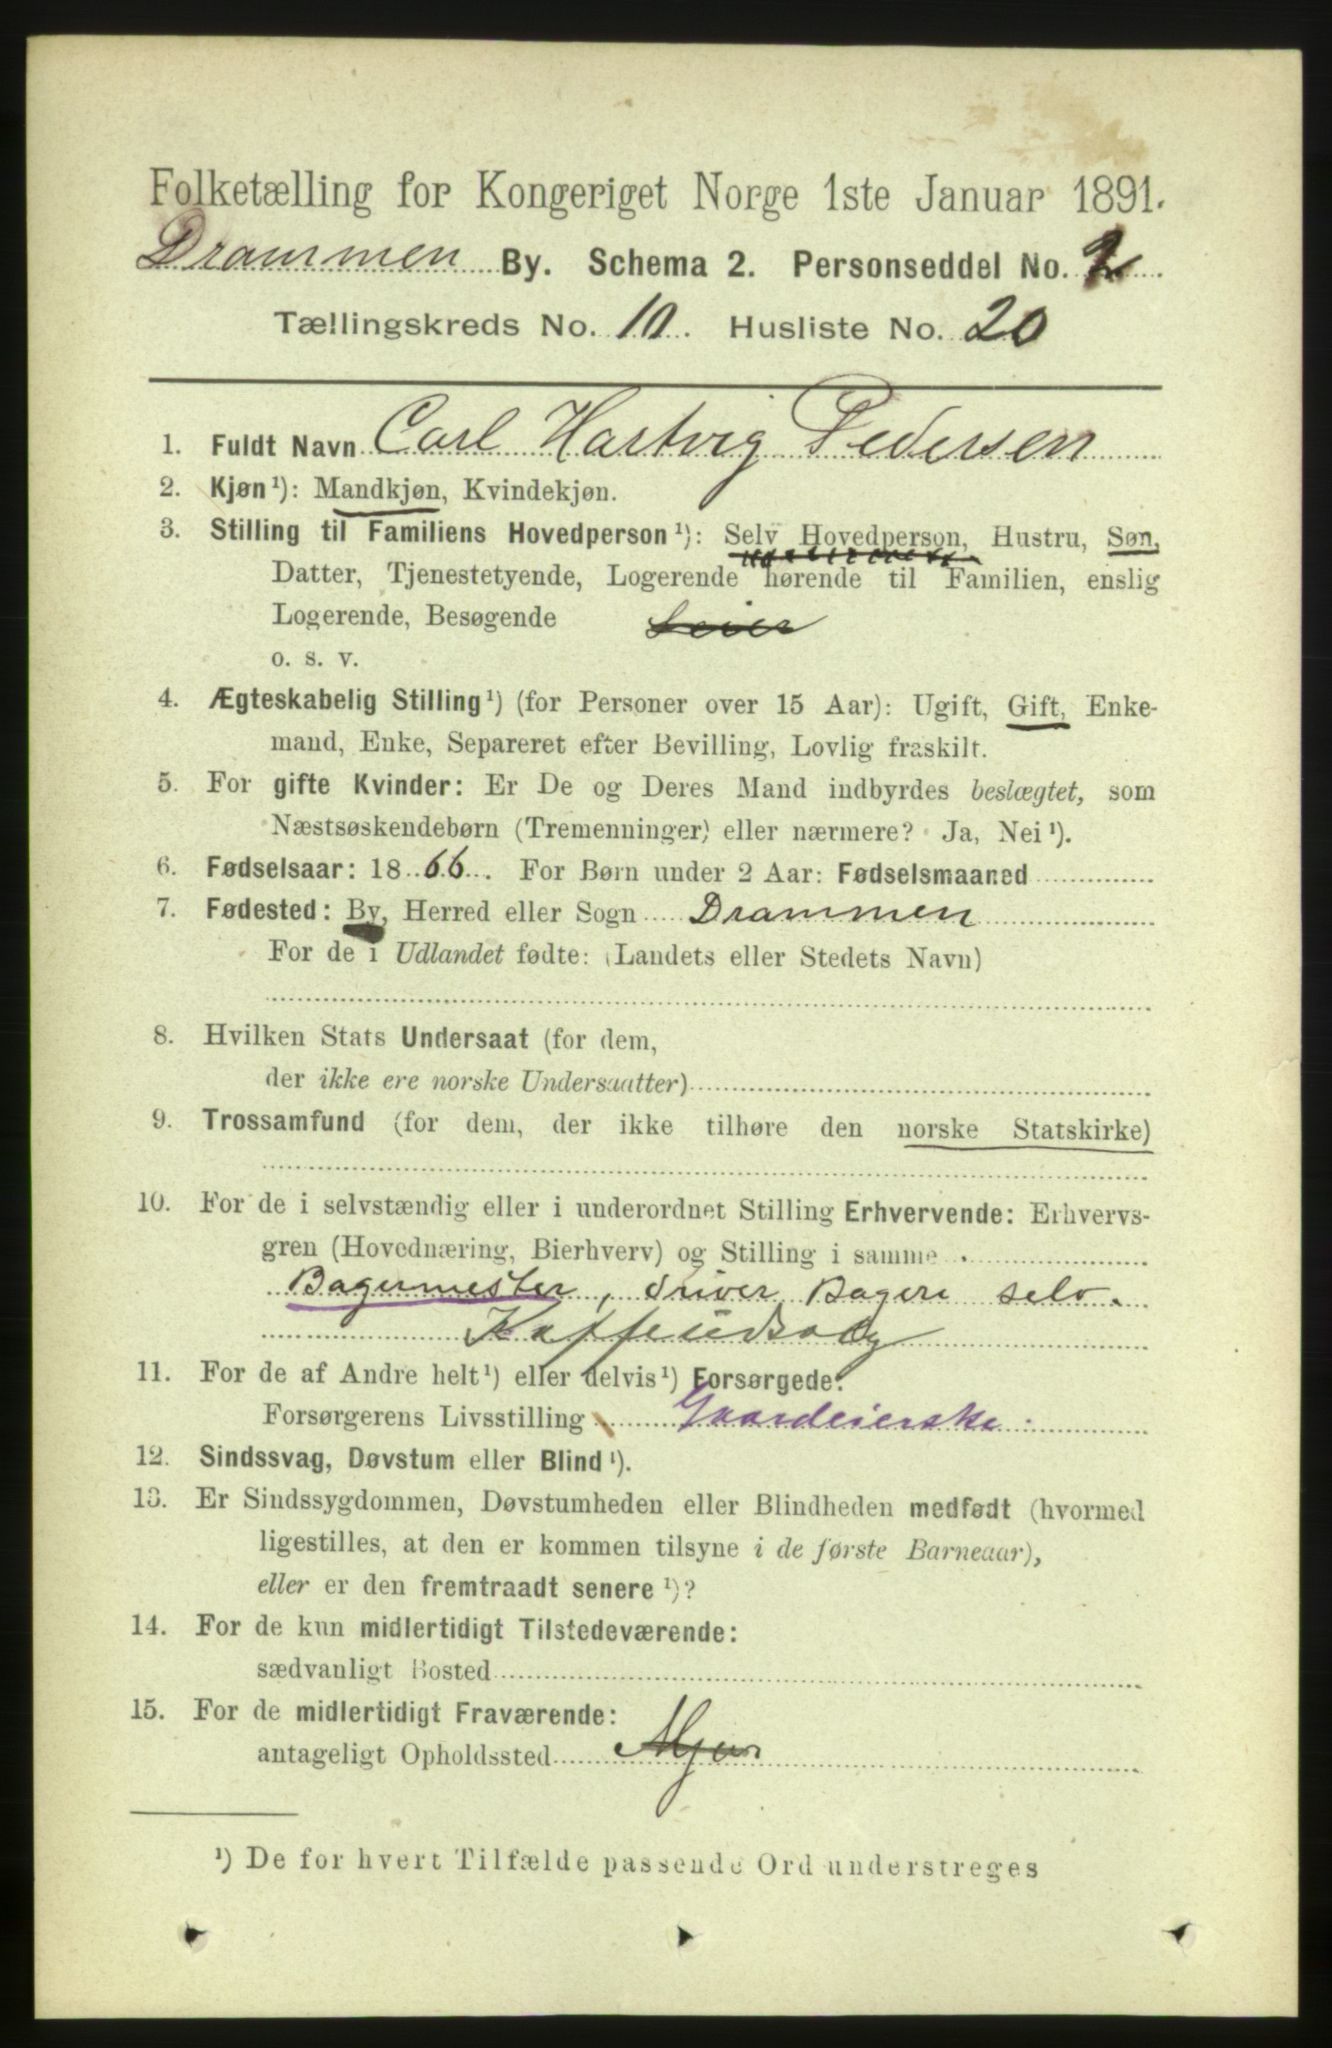 Folketælling for Kongeriget Norge 1ste Januar 1891.
Drammen By. Schema 2. Personseddel No. 2
Tællingskreds No. 10. Husliste No. 20
1. Fuldt Navn Carl Hartvig Pedersen
2. Kjøn¹): Mandkjøn, Kvindekjøn.
3. Stilling til Familiens Hovedperson¹): Selv Hovedperson, Hustru, Søn,
Datter, Tjenestetyende, Logerende hørende til Familien, enslig
Logerende, Besøgende Leier
o. s. v.
4. Ægteskabelig Stilling¹) (for Personer over 15 Aar): Ugift, Gift, Enke-
mand, Enke, Separeret efter Bevilling, Lovlig fraskilt.
5. For gifte Kvinder: Er De og Deres Mand indbyrdes beslægtet, som
Næstsøskendebørn (Tremenninger) eller nærmere? Ja, Nei¹).
6. Fødselsaar: 1866. For Børn under 2 Aar: Fødselsmaaned
7. Fødested: By, Herred eller Sogn Drammen
For de i Udlandet fødte: (Landets eller Stedets Navn)
8. Hvilken Stats Undersaat (for dem,
der ikke ere norske Undersaatter)
9. Trossamfund (for dem, der ikke tilhøre den norske Statskirke)
10. For de i selvstændig eller i underordnet Stilling Erhvervende: Erhvervs-
gren (Hovednæring, Bierhverv) og Stilling i samme
Bagermester, driver Bageri selv.
Kaffeudsalg
11. For de af Andre helt¹) eller delvis¹) Forsørgede:
Forsørgerens Livsstilling Gaardeierske
12. Sindssvag, Døvstum eller Blind¹).
13. Er Sindssygdommen, Døvstumheden eller Blindheden medfødt (hvormed
ligestilles, at den er kommen tilsyne i de første Barneaar),
eller er den fremtraadt senere¹)?
14. For de kun midlertidigt Tilstedeværende:
sædvanligt Bosted
15. For de midlertidigt Fraværende:
antageligt Opholdssted
¹) De for hvert Tilfælde passende Ord understreges